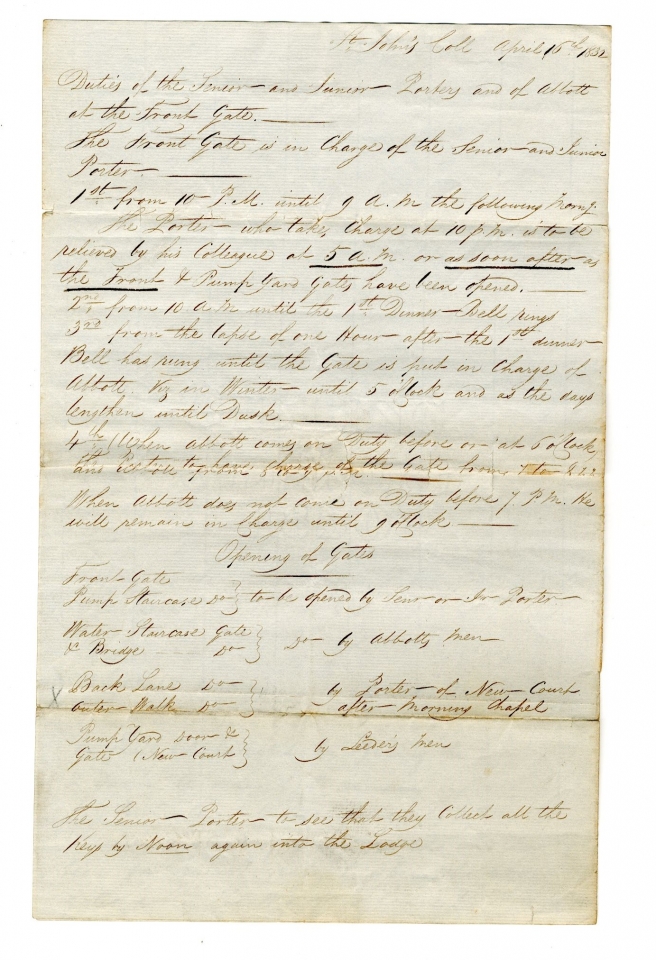 St. John's Coll April 15th 1832
Duties of the Senior and Junior Porters and of Abbott
at the Front Gate.
The Front Gate is in Charge of the Senior and Junior
Porter.
1st from 10 P.M. until 9 A.M the following Morng.
The Porter who takes Charge at 10 P.M. is to be
relieved by his Colleague at 5 A.M. or as soon after as
the Front & Pump Yard Gates have been opened.
2nd from 10 A.M until the 1st Dinner Bell rings
3rd from the lapse of one Hour after the 1st dinner
Bell has rung until the Gate is put in Charge of
Abbott. Viz in Winter until 5 o'Clock and as the days
lengthen until Dusk.
4th When Abbott comes on Duty before or at 5 o'Clock,
the Gate from 7 to
When Abbott does not come on Duty before 7 P.M. He
will remain in Charge until 9 o'Clock
Opening of Gates
Front Gate
Pump Staircase Do } to be opened by Senr or Jr Porter
Water Staircase Gate
& Bridge Do } Do by Abbotts Men
X Back Lane Do } by Porter of New Court
Outer Walk Do after Morning Chapel
Pump Yard Door &
Gate (New Court } by Leeder's Men
The Senior Porter to see that they Collect all the
Keys by Noon again into the Lodge